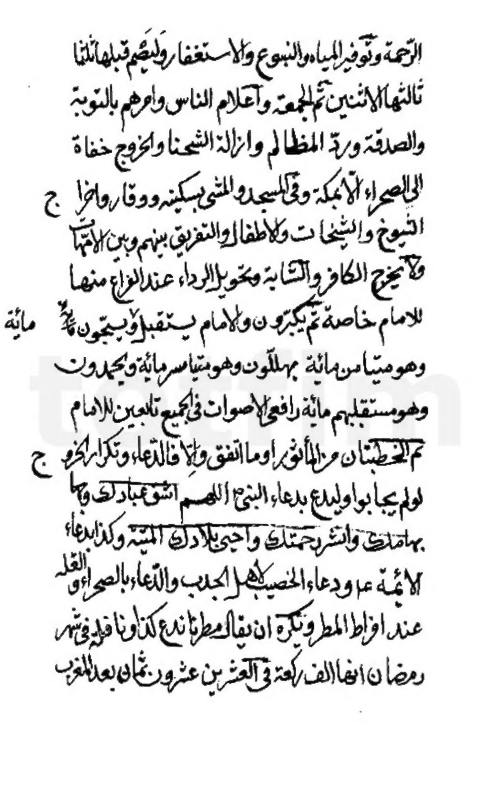 الرحمة وتوفير المياه والنبوع والاستغفار وليصم قبلها ثلثا
ثالثها الاثنين ثم الجمعة واعلام الناس وامرهم بالتوبة
والصدقة ورد المظالم وازالة الشحنا والخروج حفاة
الى الصحراء الا بمكة وفى المسجد والمشى بسكينه ووقار واخرا ج
الشيوخ والشيخات والاطفال والتفريق بينهم وبين الامهات
ولا يخرج الكافر والشابة وتحويل الرداء عند الفراغ منها
للامام خاصة ثم يكبرون والامام يستقبل ويسبحون مائة
وهو متيامن مائة يهللون وهو متياسر مائة ويحمدون
وهو مستقبلهم مائة رافعى الاصوات فى الجميع تابعين للامام
ثم الخطبتان من المأثور او ما اتفق والا فالدعاء وتكرار الخرو ج
لو لم يجابوا وليدع بدعاء النبى اللهم اسق عبادك
بهائمك وانشر رحمتك واحيى بلادك الميتة وكذا بدعاء
الائمة ودعاء الخصيب لاهل الجدب والدعاء بالصحراء
عند افراط المطر ويكره ان يقال مطرنا كذا ونافلة فى شهر
رمضان انها الف ركعة فى العشرين عشرون ثمان بعد المغرب
totfim